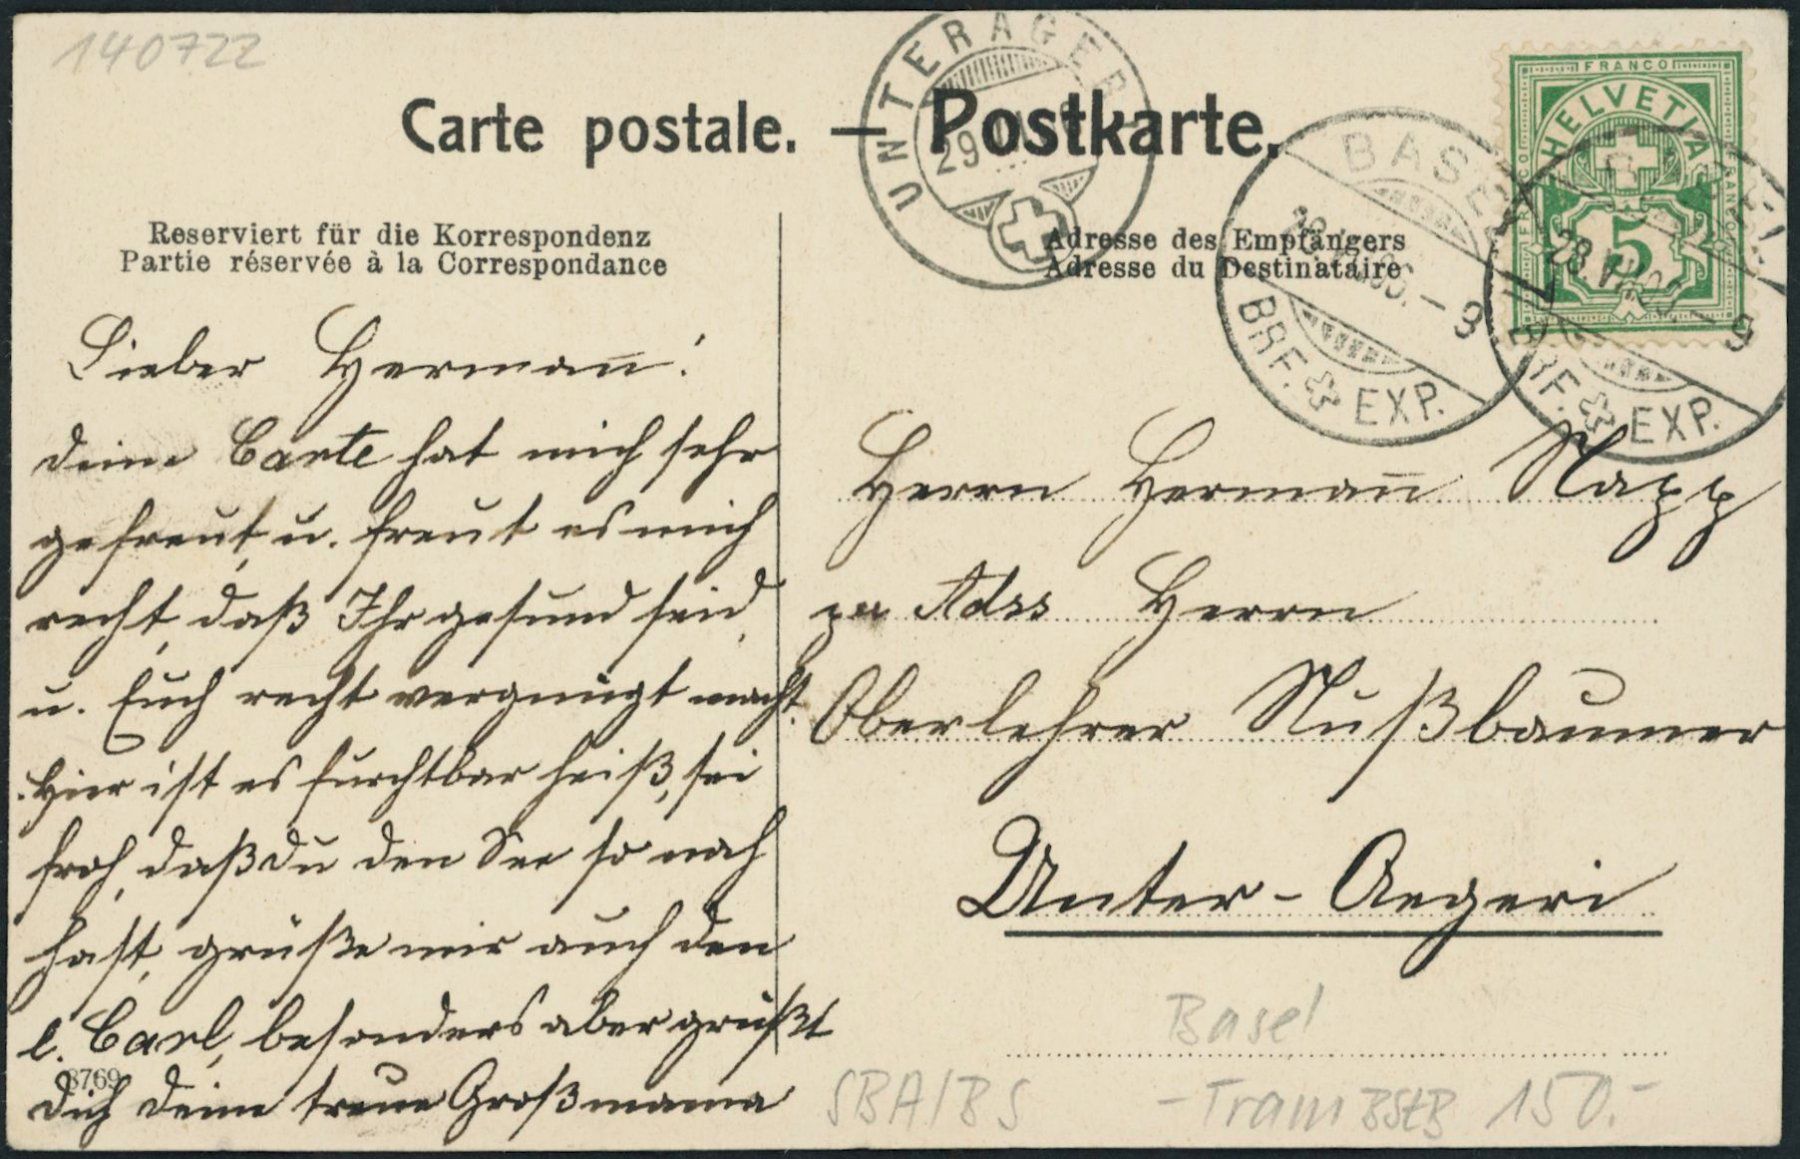 140722
Carte postale. — Postkarte.
UNTERAGERI
29
BASEL
28.VII.05.-9
BRF. EXP.
BASEL
28.VII.05.-9
BRF. EXP.
FRANCO
HELVETIA
FRANCO
FRANCO
5
Reserviert für die Korrespondenz
Partie réservée à la Correspondance
Adresse des Empfängers
Adresse du Destinataire
Lieber Hermann!
deine Carte hat mich sehr
gefreut, u. freut es mich
recht, daß Ihr gesund seid,
u. Euch recht vergnügt macht.
Hier ist es furchtbar heiß, sei
froh, daß du den See so nah
hast, grüße mir auch den
l. Carl, besonders aber grüßt
dich deine treue Großmama
8769
Herrn Hermann Napp
per Adss Herrn
Oberlehrer Nußbaumer
Unter-Aegeri
Basel
SBA/BS
-Tram BStB 150.-